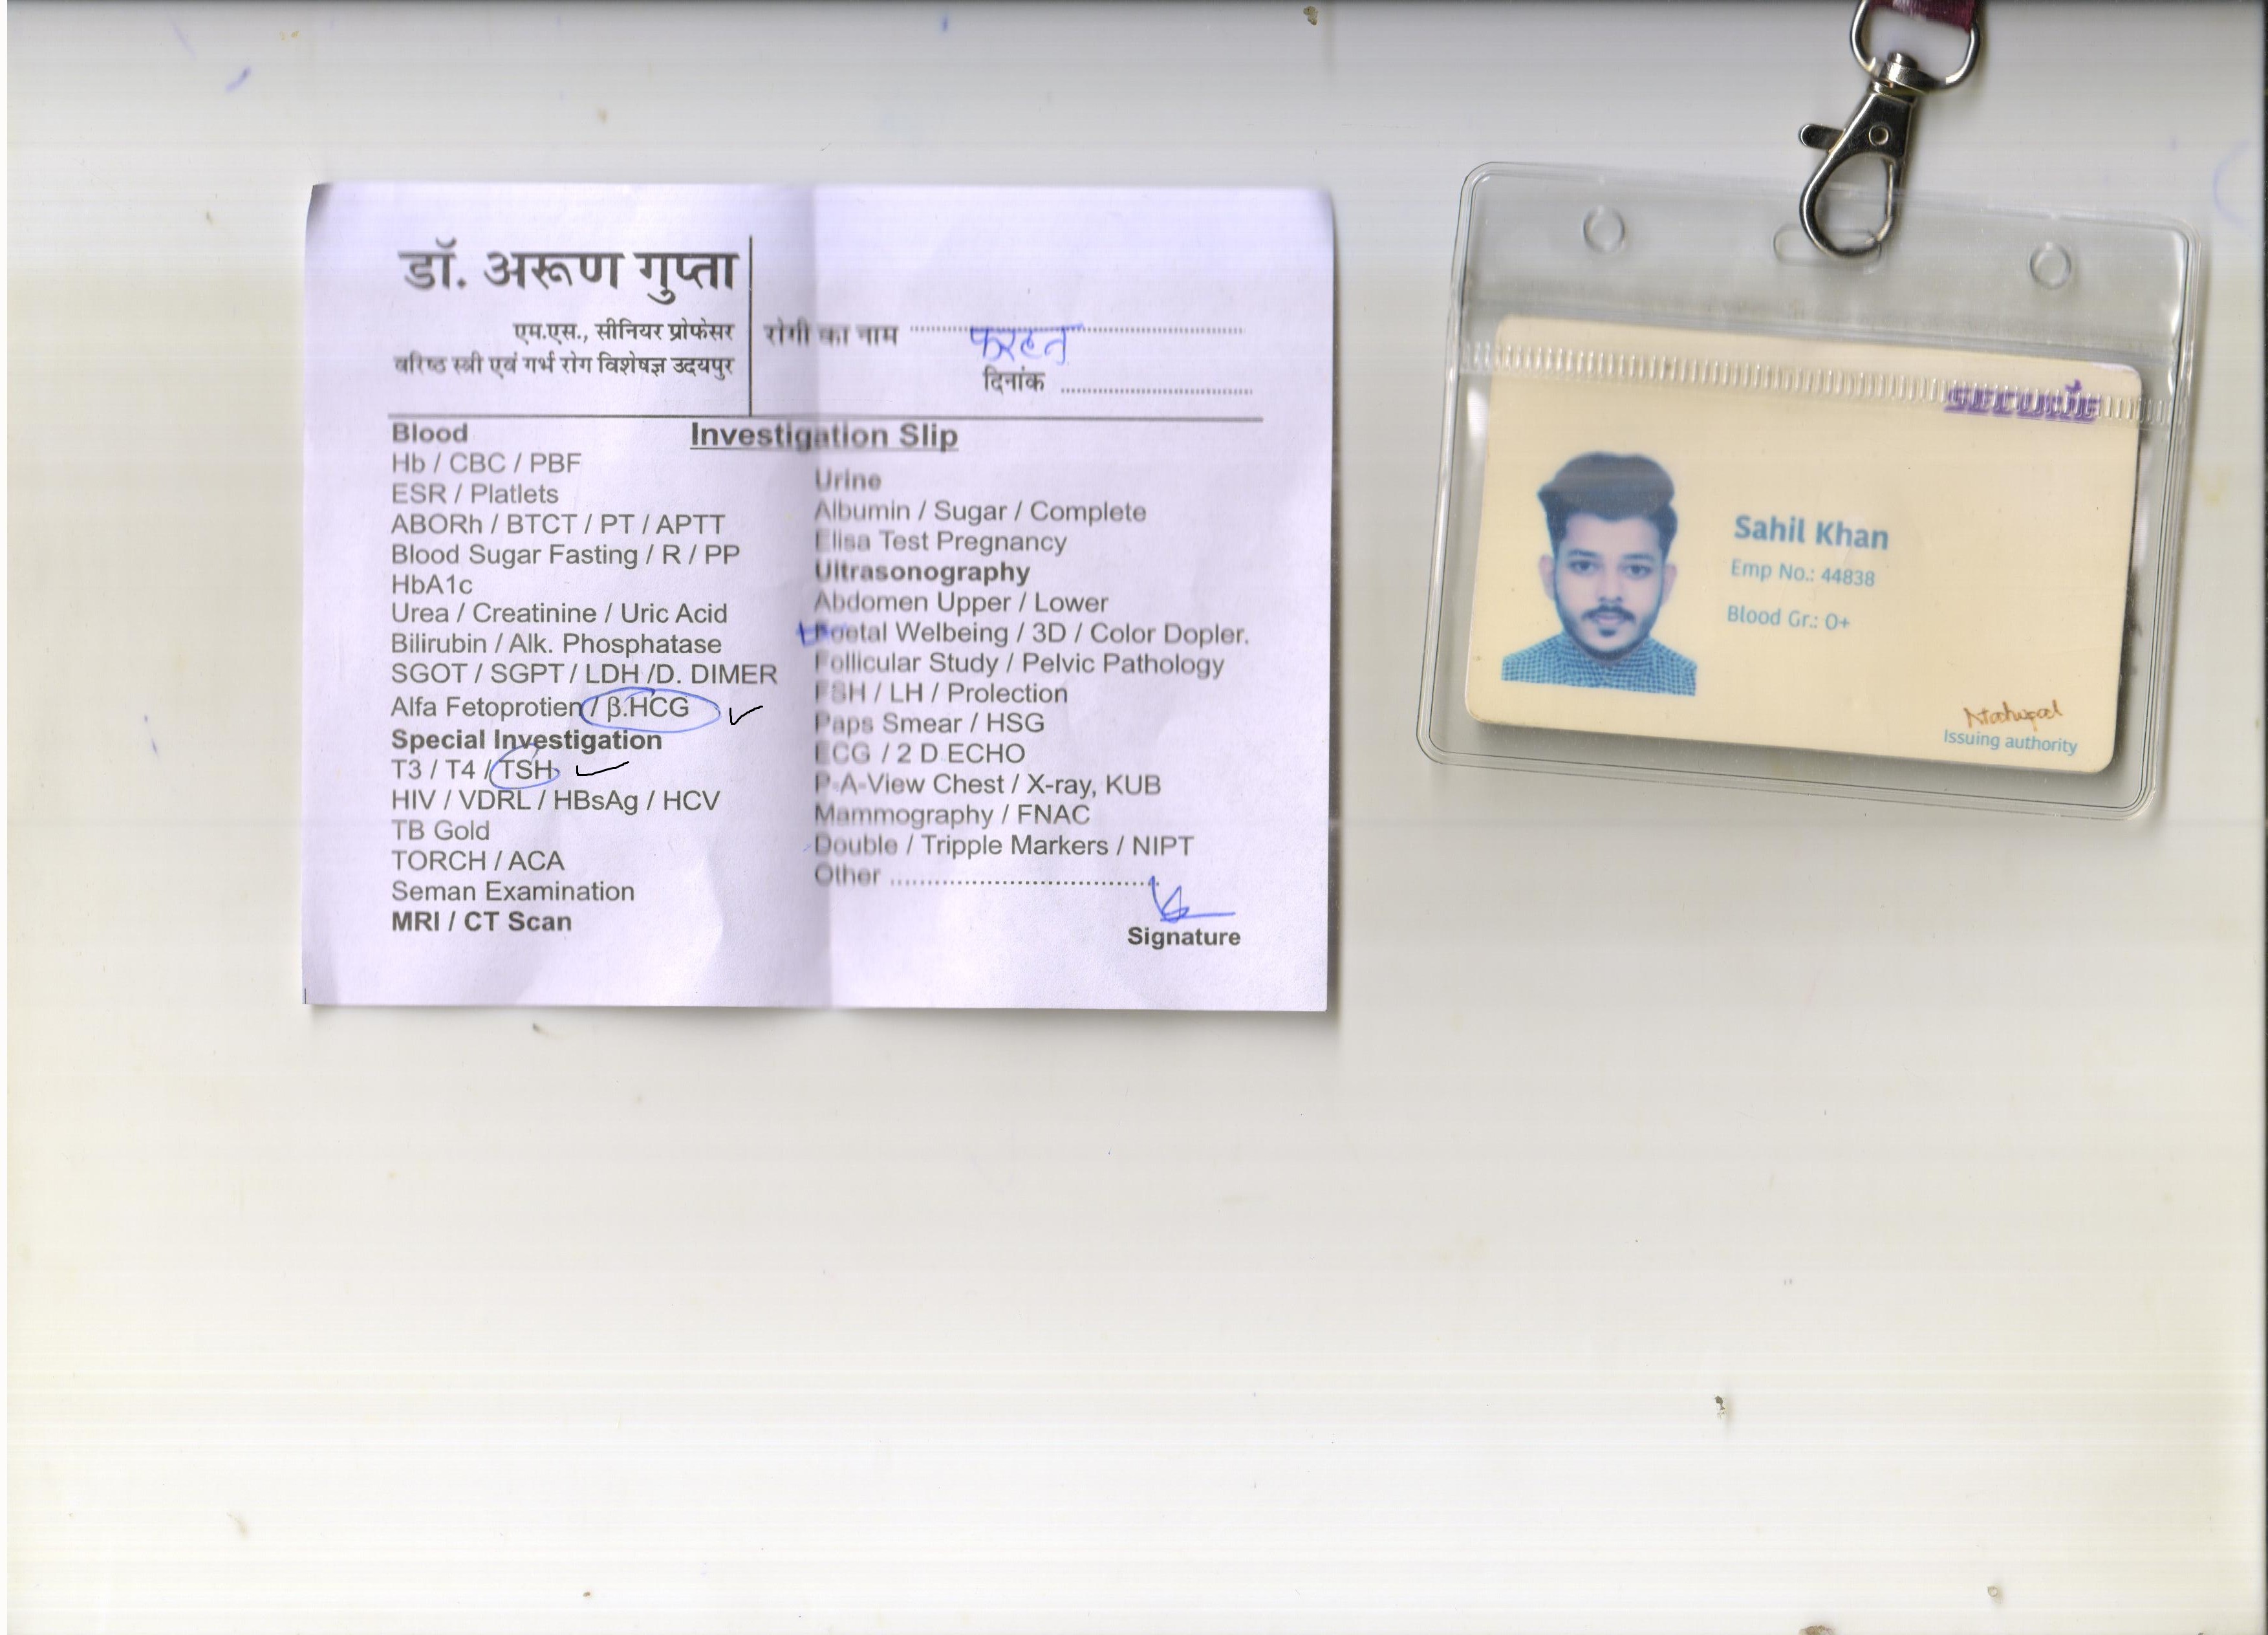 डॉ. अरूण गुप्ता
एम.एस., सीनियर प्रोफेसर
वरिष्ठ स्त्री एवं गर्भ रोग विशेषज्ञ उदयपुर
रोगी का नाम फरहत
दिनांक
Investigation Slip
Blood
Hb / CBC / PBF
ESR / Platlets
ABORh / BTCT / PT / APTT
Blood Sugar Fasting / R / PP
HbA1c
Urea / Creatinine / Uric Acid
Bilirubin / Alk. Phosphatase
SGOT / SGPT / LDH /D. DIMER
Alfa Fetoprotien / β.HCG
Special Investigation
T3 / T4 / TSH
HIV / VDRL / HBsAg / HCV
TB Gold
TORCH / ACA
Seman Examination
MRI / CT Scan
Urine
Albumin / Sugar / Complete
Elisa Test Pregnancy
Ultrasonography
Abdomen Upper / Lower
Foetal Welbeing / 3D / Color Dopler.
Follicular Study / Pelvic Pathology
FSH / LH / Prolection
Paps Smear / HSG
ECG / 2 D ECHO
P-A-View Chest / X-ray, KUB
Mammography / FNAC
Double / Tripple Markers / NIPT
Other
Signature
Sahil Khan
Emp No.: 44838
Blood Gr.: O+
Issuing authority